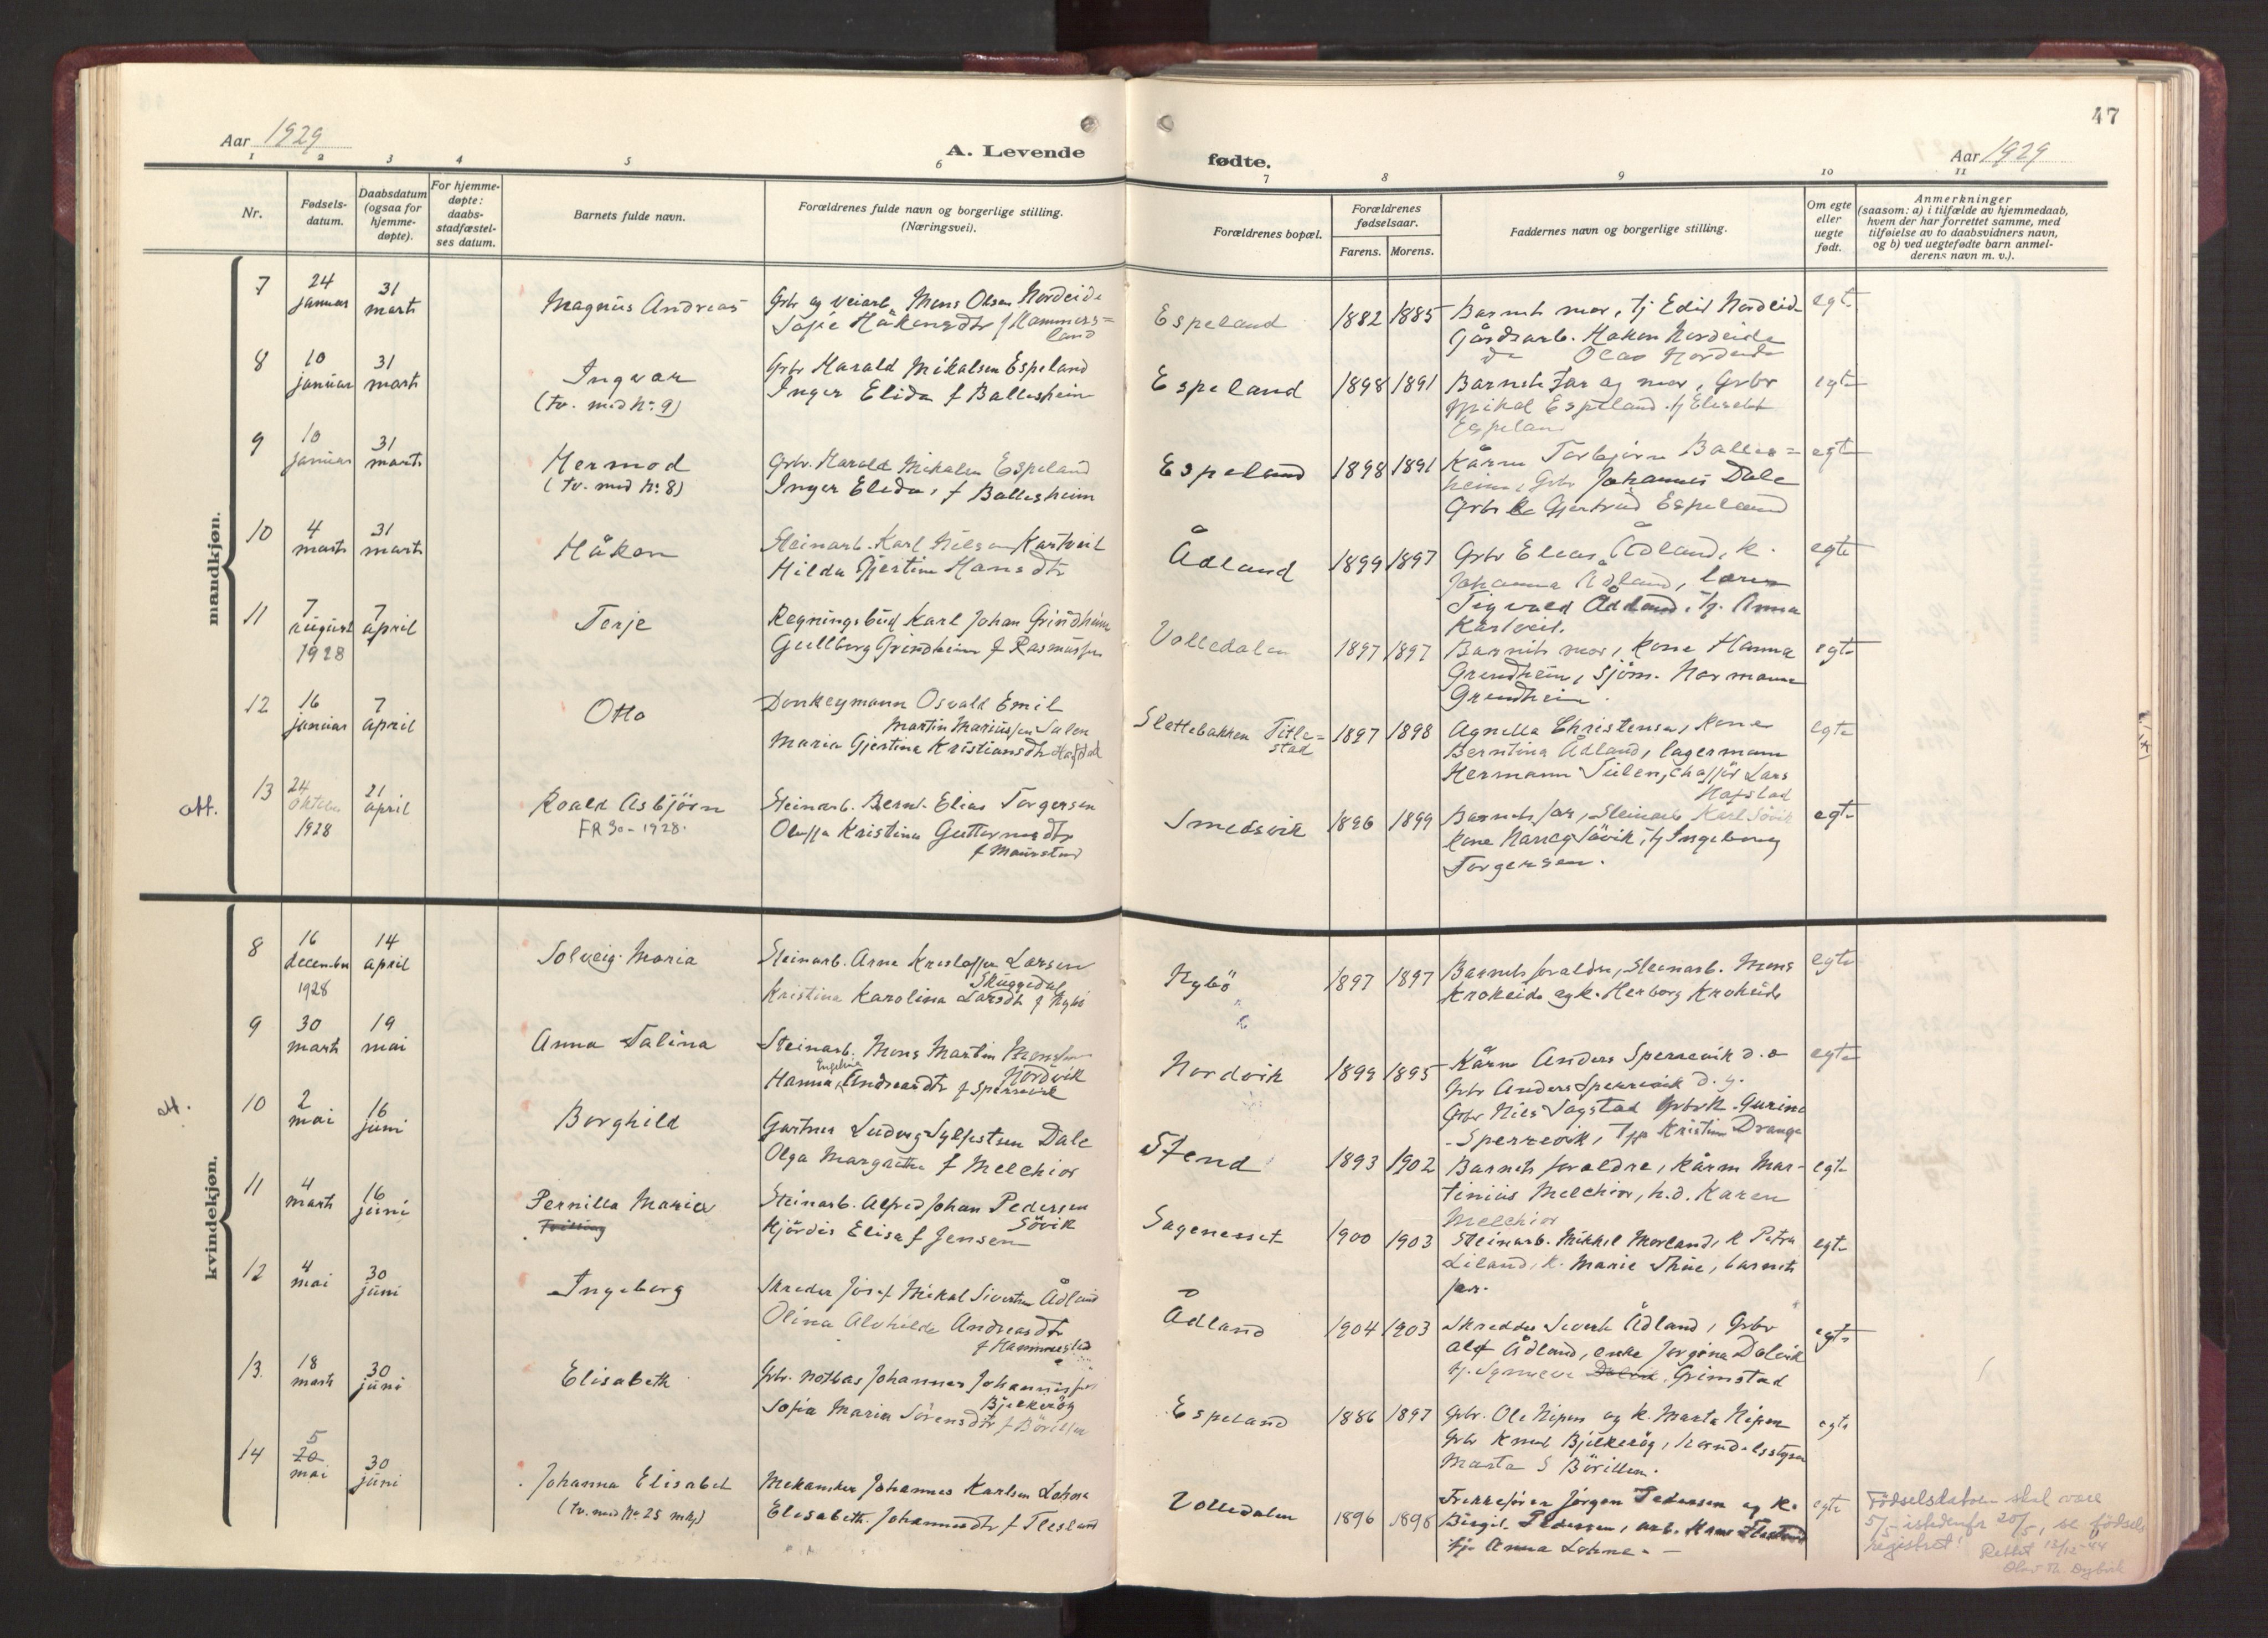 47
Aar 1929
A. Levende
fødte.
Aar 1929
1 2 3 4 5 6 7 8 9 10 11
Nr.
Fødsels-
datum.
Daabsdatum
(ogsaa for
hjemme-
døpte).
For hjemme-
døpte:
daabs-
stadfæstel-
ses datum.
Barnets fulde navn.
Forældrenes fulde navn og borgerlige stilling.
(Næringsvei).
Forældrenes bopæl.
Forældrenes
fødselsaar.
Farens. Morens.
Faddernes navn og borgerlige stilling.
Om egte
eller
uegte
født.
Anmerkninger
(saasom: a) i tilfælde av hjemmedaab,
hvem der har forrettet samme, med
tilføielse av to daabsvidners navn,
og b) ved uegtefødte barn anmel-
derens navn m. v.).
mandkjøn.
7
24
januar
31
marts
Magnus Andreas
Grbr og veiarb. Mons Olsen Nordeide
Sofie Håkonsdtr f Hammers=
land
Espeland
1882 1885
Barnets mor, tj Edit Nordeide
Gårdsarb. Håkon Nordeide
do Olav Nordeide
egte
8
10
januar
31
marts
Ingvar
(tv. med Nr 9)
Grbr Harald Mikalsen Espeland
Inger Elida f Ballesheim
Espeland
1898 1891
Barnets far og mor, Grbr
Mikal Espeland, tj Elisabet
Espeland
egte
9
10
januar
31
marts
Hermod
(tv. med Nr 8)
Grbr. Harald Mikalsen Espeland
Inger Elida, f Ballesheim
Espeland
1898 1891
Kårm Torbjørn Balles=
heim, Grbr Johannes Dale
Grbr k Gjertrud Espeland
egte
10
4
marts
31
marts
Håkon
Steinarb. Karl Nilsen Kartveit
Hilda Gjertine Hansdtr
Ådland
1899 1897
Grbr Elias Ådland, k.
Johanna Ådland, lærer
Sigvald Ådland, tj. Anna
Kartveit.
egte
11
7
august
1928
7
april
Terje
Regningsbud Karl Johan Grindheim
Gullborg Grindheim f Rasmussen
Volledalen
1897 1897
Barnets mor, kone Hanna
Grindheim, sjøm. Normann
Grindheim.
egte
12
16
januar
7
april
Otto
Donkeymann Osvald Emil
Martin Mariussen Sulen
Maria Gjertina Kristiansdtr Hafstad
Slettebakken Title=
stad
1897 1898
Agnella Christensen, kone
Berntina Ådland, lagermann
Hermann Sulen, chaffør Lars
Hafstad
egte
att.
13
24
oktober
1928
21
april
Roald Asbjörn
FR 30-1928.
Steinarb. Bernt Elias Torgersen
Oluffa Kristina Guttormsdtr
f Maurstad
Smedsvik
1896 1899
Barnets far, Steinarb Karl Sövik
kone Nancy Sövik, tj Ingeborg
Torgersen.
egte
kvindekjøn.
8
16
december
1928
14
april
Solveig Maria
Steinarb. Arne Kristoffer Larsen
Skuggedal
Kristina Karolina Larsdtr f Nybö
Nybö
1897 1897
Barnets foreldre, Steinarb. Mons
Krokeide og k. Herborg Krokeide
egte
9
30
marts
19
mai
Anna Salina
Steinarb. Mons Martin Monsen
Nordvik
Hanna Engeline Andreasdtr f Sperrevik
Nordvik
1899 1895
Kårm Anders Sperrevik d. e
Grbr Anders Sperrevik d. y.
Grbr Nils Sagstad Grbrk Gurine
Sperrevik, Tpp Kristine Drange
egte
att.
10
2
mai
16
juni
Borghild
Gartner Ludvig Sylfestsen Dale
Olga Margrethe f Melchior
Stend
1893 1902
Barnets foreldre, Kårm Mar-
tinius Melchior, h.d. Karen
Melchior
egte
11
4
marts
16
juni
Pernilla Maria
Tvilling
Steinarb. Alfred Johan Pedersen
Sövik
Hjördis Elisa f Jensen
Sagenesset
1900 1903
Steinarb. Mikkel Morland, k Petra
Liland, k. Marie Thue, barnets
far.
egte
12
4
mai
30
juni
Ingeborg
Skredder Josef Mikal Sivertsen Ådland
Olina Alvhilde Andreasdtr
f Hammersland
Ådland
1904 1903
Skredder Sivert Ådland, Grbr
Alf Ådland, enke Jorgina Dalvik
tj. Synneve Dalvik Grimstad
egte
13
18
marts
30
juni
Elisabeth
Grbr. notbas Johannes Johannissen
Bjelkeröy
Sofia Maria Sörensdtr f Börilsen
Espeland
1886 1897
Grbr. Ole Nipen og k. Marta Nipen
Grbr Knut Bjelkeröy, handelsstyrer
Marta S Börillsen.
egte
14
5
20
mai
30
juni
Johanna Elisabet
(tv. med Nr 25 mkj)
Mekaniker Johannes Karlsen Lohne
Elisabeth Johannesdtr f Flesland
Volledalen
1896 1898
Trikkefører Jørgen Pedersen og k.
Birgit Pedersen, arb. Hans Flesland
tj. Anna Lohne.
egte
Födselsdatoen skal være
5/5 istedenfor 20/5, se födsels
registret! Rettet 13/12-44